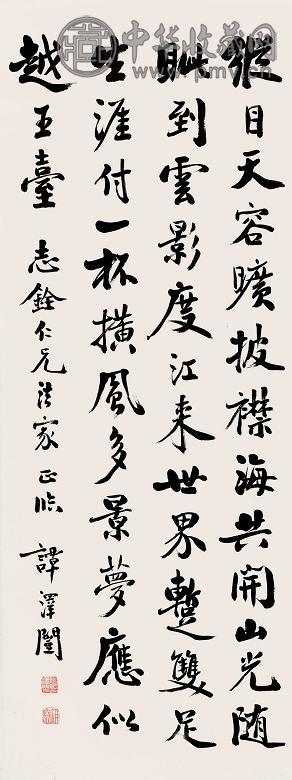 中华收藏网
縱目天容曠披襟海共開山光随
眺到雲影度江来世界蹔雙足
生涯付一杯横風多景夢應似
越王臺
志銓仁兄法家正临
譚澤闓